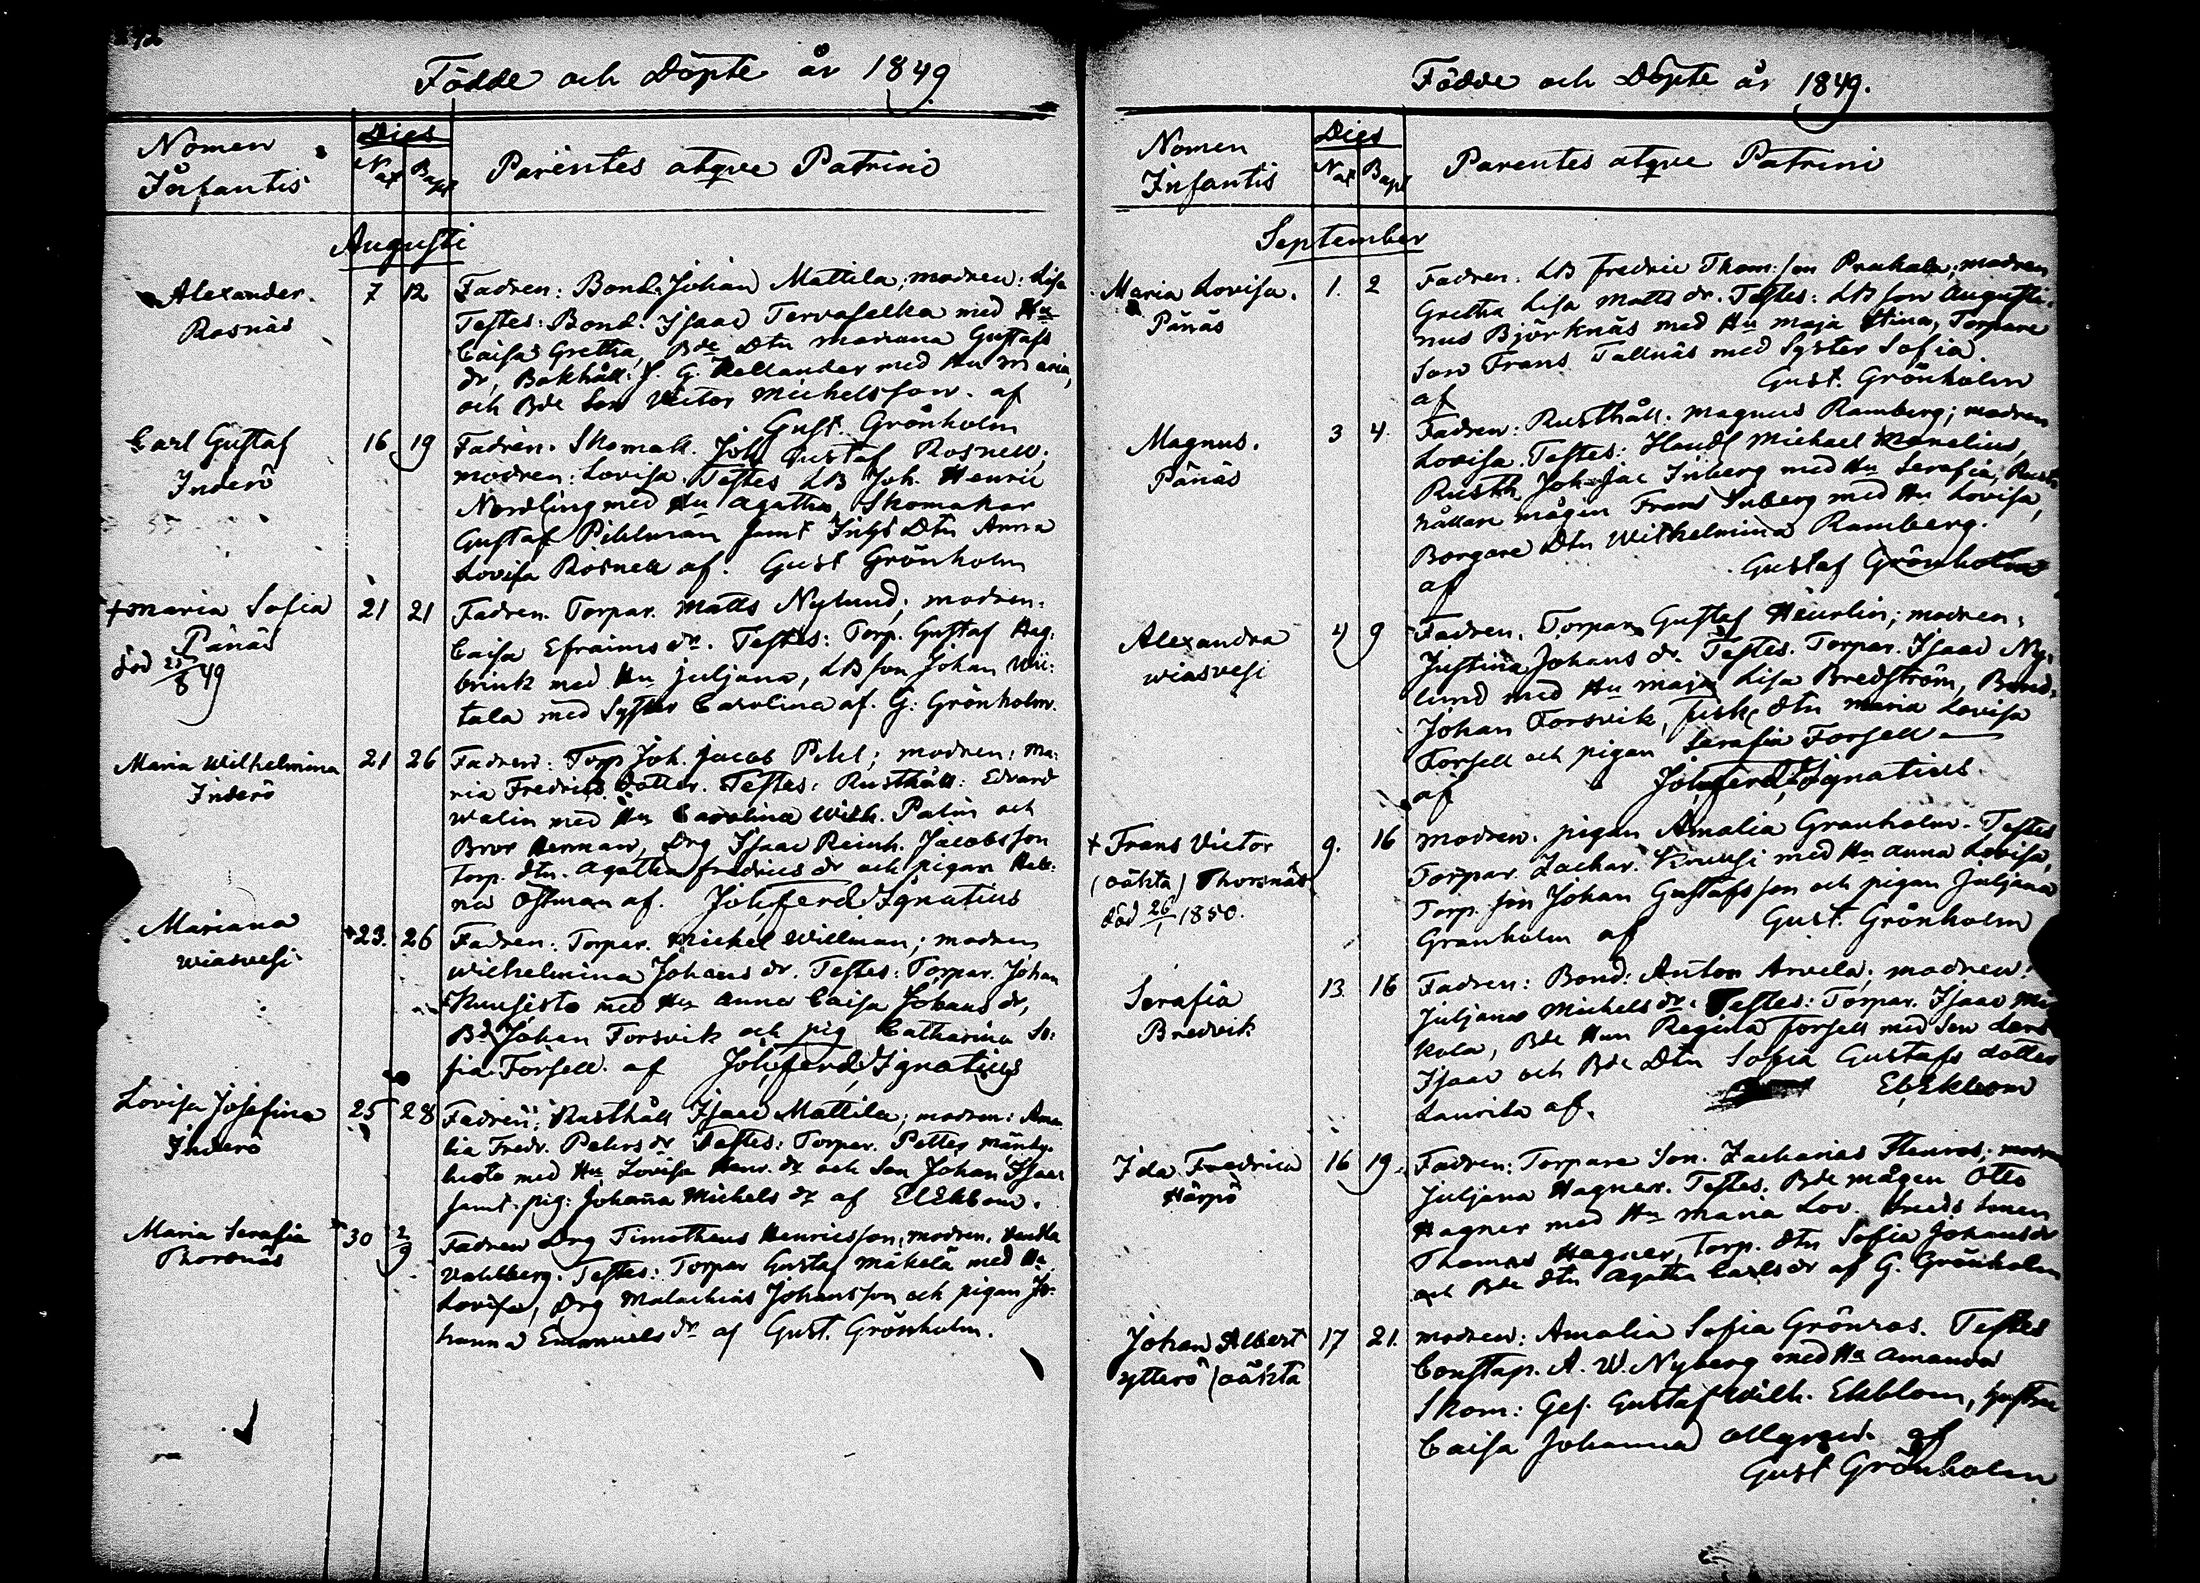 Födde och Döpte år 1849
Nomen Infantis
Dies
Nat Bapt
Parentes atqve Patrini
Augusti
Alexander.
Rosnäs
7 12
Fadren: Bond. Johan Mattila; modren: Lisa
Testes: Bond. Isaac Tervaselkä med Hu
Caisa Gretha, Bde Dtn Mariana Gustafs
dr, Bokhåll: J. G. Hellander med Hu Maria,
och Bde Son Victor Michelsson. af
Gust. Grönholm
Carl Gustaf
Inderö
16 19
Fadren. Skomak. Joh Gustaf Rosnell;
modren: Lovisa. Testes LB Joh. Henric
Nordling med Hu Agatha, Skomakar
Gustaf Pihlman samt Inhs Dtn Anna
Lovisa Rosnell af. Gust Grönholm
+ Maria Sofia
Pänäs
död 25/8 49
21 21
Fadren. Torpar. Matts Nylund; modren.
Caisa Efraims dr. Testes: Torp. Gustaf Hag-
brink med Hu Juljana, LB son Johan Wii-
tala med Syster Carolina af. G: Grönholm.
Maria Wilhelmina
Inderö
21 26
Fadren: Torp Joh. Jacob Pihl; modren: Ma-
ria Fredrics dotter. Testes: Rusthåll: Edvard
Walin med Hu Carolina Wilh. Palin och
Bror Herman, Drg Isaac Reinh. Jacobsson
Torp. dtn. Agatha Fredrics dr och pigan Hele-
na Östman af. Joh. Ferd. Ignatius
Mariana
Wiasvesi
23. 26
Fadren: Torpar. Michel Willman; modren
Wilhelmina Johans dr. Testes: Torpar. Johan
Kuusisto med Hu Anna Caisa Johans dr,
Bd Johan Forsvik och pig Catharina So-
fia Forsell. af Joh. Ferd. Ignatius
Lovisa Josefina
Inderö
25 28
Fadren: Rusthåll Isaac Mattila; modren: Ama-
lia Fredr. Peters dr Testes: Torpar. Petter Mänty-
histo med Hu Lovisa Henr. dr och Son Johan Isaac
samt pig: Johanna Michels dr af El Ekbom.
Maria Serafia
Thorsnäs
30 2/9
Fadren Drg Timotheus Henricsson, modren. Hendla
Vahlberg. Testes: Torpar Gustaf Mäkelä med Hu
Lovisa, Drg Malachias Johansson och pigan Jo-
hanna Emanuels dr af Gust. Grönholm.
Födde och Döpte år 1849.
Nomen Infantis
Dies
Nat Bapt
Parentes atqve Patrini
September
Maria Lovisa.
Pänäs
1. 2
Fadren. LB Fredric Thom: son Pruhala; modren
Gretha Lisa Matts dr. Testes: LB son Augusti-
nus Björknäs med Hu Maja Stina, Torpare
Son Frans Tallnäs med Syster Sofia.
af Gust. Grönholm
Magnus.
Pänäs
3 4.
Fadren: Rusthåll. Magnus Ramberg; modren
Lovisa. Testes: Handl Michael Manelius,
Rusth Joh Jac Inberg med Hu Serafia, Rust-
hållare mågen Frans Inberg med Hu Lovisa,
Borgare Dtn Wilhelmina Ramberg.
af Gustaf Grönholm
Alexandra
Wiasvesi
4 9
Fadren. Torpar Gustaf Heurlin; modren,
Justina Johans dr. Testes. Torpar. Isaac Ny-
lund med Hu Maja Lisa Bredström, Bond.
Johan Forsvik, fisk. dtn Maria Lovisa
Forsell och pigan Serafia Forsell
af Joh. Ferd. Ignatius.
+ Frans Victor
(oäkta) Thorsnäs
död 26/1 1850.
9. 16
Modren. pigan Amalia Granholm. Testes
Torpar. Zachar. Kruusi med Hu Anna Lovisa,
Torp. son Johan Gustafsson och pigan Juljana
Granholm af Gust. Grönholm
Serafia
Bredvik
13. 16
Fadren: Bond: Anton Arvela; modren:
Juljana Michels dr. Testes: Torpar. Isaac Mic-
kola, Bde Hun Regina Forsell med Son Lars
Isaac och Bde Dtn Sofia Gustafs dotter
Laurila af. El. Ekbom
Ida Fredrica
Härpö
16 19.
Fadren: Torpare Son. Zacharias Stenros; modren
Juljana Hagner. Testes. Bde mågen Otto
Hagner med Hu Maria Lov.
Thomas Hagner, Torp. dtn Sofia Johans dr
och Bde dtn Agatha Carls dr af G. Grönholm
Johan Albert
Ytterö (oäkta
17 21.
Modren: Amalia Sofia Grönros. Testes
Constap. A. W. Nyberg med Hu Amanda
Skom: Ges. Gustaf Wilh. Ekblom, hustru
Caisa Johanna Allgren. af
Gust Grönholm